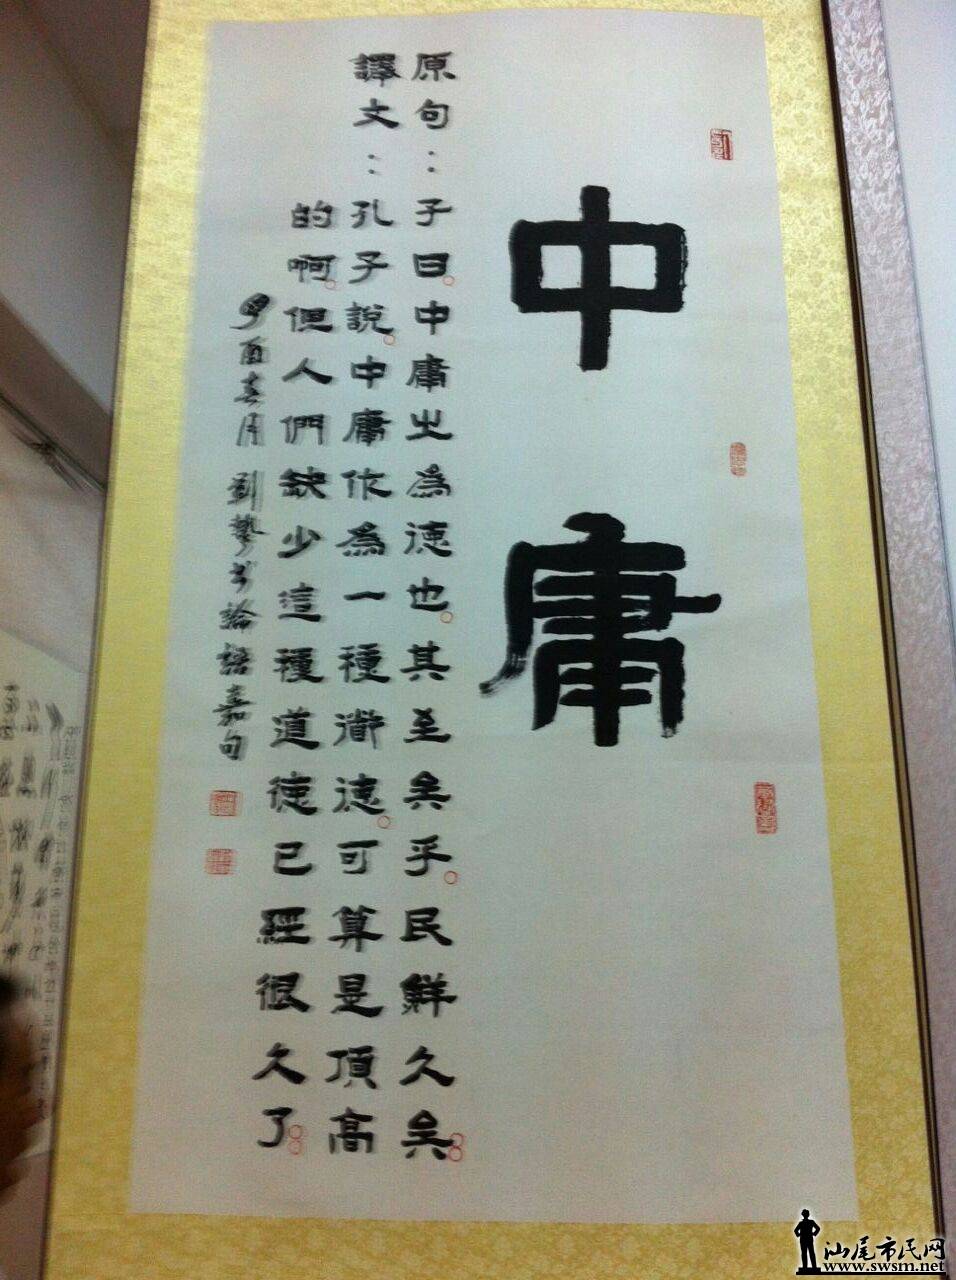 中庸
原句：子曰。中庸之為德也。其至矣乎。民鮮久矣。
譯文：孔子說。中庸作為一種道德。可算是頂高
的啊。但人們缺少這種道德已經很久了。
酉春月 劉 书論語嘉句
汕尾市民网
www.swsm.net